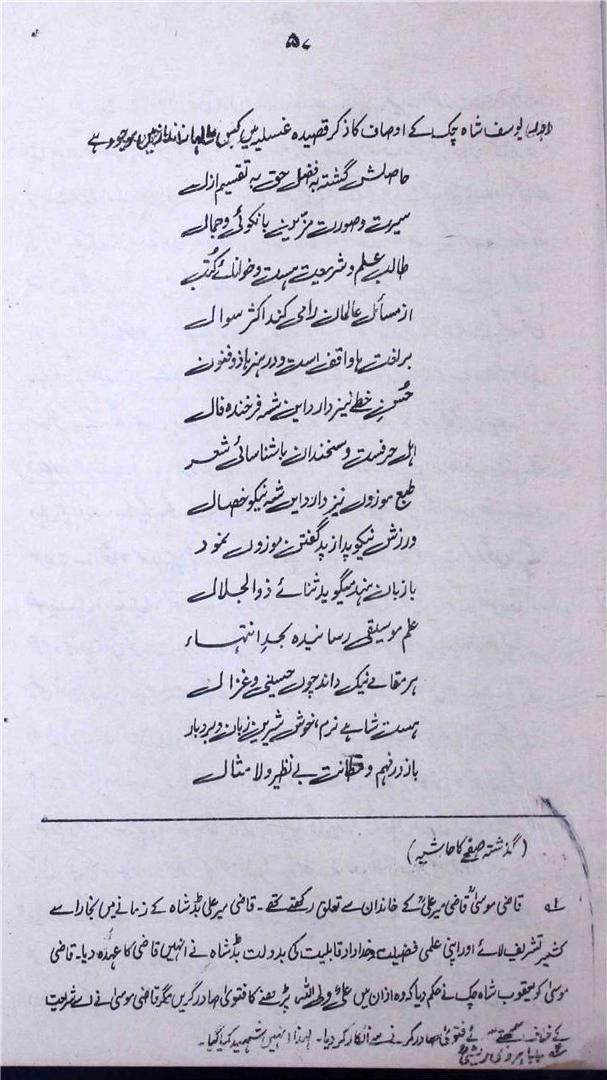 ۵۷
اور یوسف شاہ چک کے اوصاف کا ذکر قصیدہ غسلیہ میں کس والہانہ انداز میں موجود ہے
حاصلش گشتہ بفضل حق بہ تقسیم ازل
سیرت و صورت مزین با نکوئی و جمال
طالب علم و شریعت ہست و خوانائے کتب
از مسائل عالمان را می کند اکثر سوال
بر لغت ہا واقف است و در ہنر ہا ذوفنون
حسن خطے نیز دارد این شہ فرخندہ فال
اہل حرفست و سخندان با شناسائی شعر
طبع موزوں نیز دارد این شہ نیکو خصال
ورزش نیکو پدازپد گفتن موزوں نمود
با زبان ہند میگوید ثنائے ذوالجلال
علم موسیقی رسانیدہ بحد انتہاء
ہر مقامے نیک داند چوں حسینی و غزال
ہست شاہے نرم، خوش شریں زبان و بردبار
باز در فہم و فطانت بے نظیر و لا مثال
(گذشتہ صفحے کا حاشیہ)
۱؎ قاضی موسیٰؒ قاضی میر علیؒ کے خاندان سے تعلق رکھتے تھے۔ قاضی میر علی بڈشاہ کے زمانے میں بخارا سے
کشمیر تشریف لائے اور اپنی علمی فضیلت و خداداد قابلیت کی بدولت بڈشاہ نے انہیں قاضی کا عہدہ دیا۔ قاضی
موسیٰ کو یعقوب شاہ چک نے حکم دیا کہ وہ اذان میں علیؑ ولی اللہ پڑھنے کا فتویٰ صادر کریں مگر قاضی موسیٰ نے اسے شریعت
کے خلاف سمجھتے فتویٰ صادر کرنے سے انکار کر دیا۔ لہذا انہیں شہید کیا گیا۔
۲؎ بابا ہردی ریشیؒ